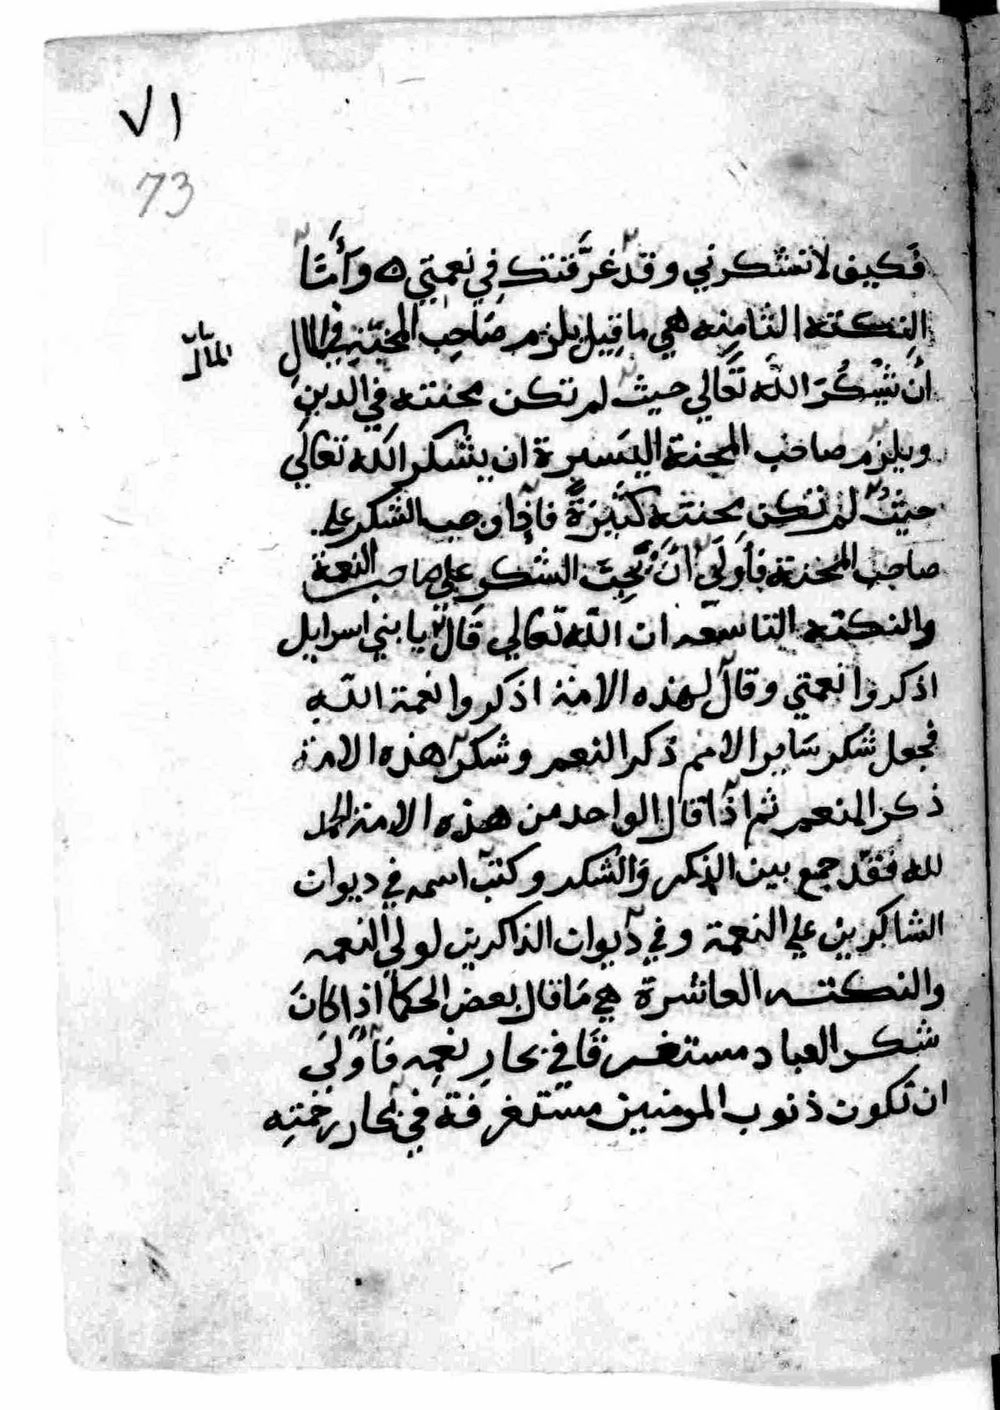 ٧١
73
فكيف لا تشكرني وقد غرقتك في نعمتي ه وأما
النكته الثامنه هي ما قيل يلزم صاحب المحنة في المال
المال
أن يشكر الله تعالي حيث لم تكن محنته في الدين
ويلزم صاحب المحنة اليسيرة ان يشكر الله تعالي
حيث لم تكن محنته كثيرة فاذا وجب الشكر على
صاحب المحنة فأولى ان يجب الشكر علي صاحب النعمة
والنكته التاسعه ان الله تعالي قال يا بني اسرايل
اذكروا نعمتي وقال لهذه الامة اذكروا نعمة الله
فجعل شكر ساير الامم ذكر النعم وشكر هذه الامة
ذكر المنعم ثم اذا قال الواحد من هذه الامة الحمد
لله فقد جمع بين الذكر والشكر وكتب اسمه في ديوان
الشاكرين علي النعمة وفي ديوان الذاكرين لولي النعمه
والنكته العاشرة هي ما قال بعض الحكما اذا كان
شكر العباد مستغرقا في بحار نعمه فأولى
ان تكون ذنوب المومنين مستغرقة في بحار رحمته